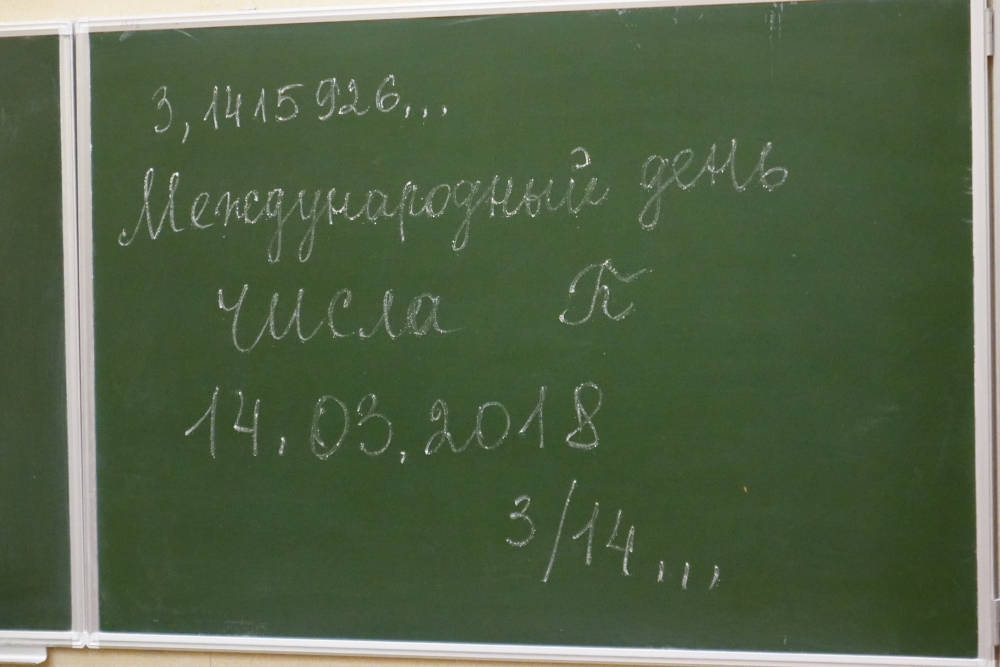 3,1415926...
Международный день
числа π
14.03.2018
3/14...